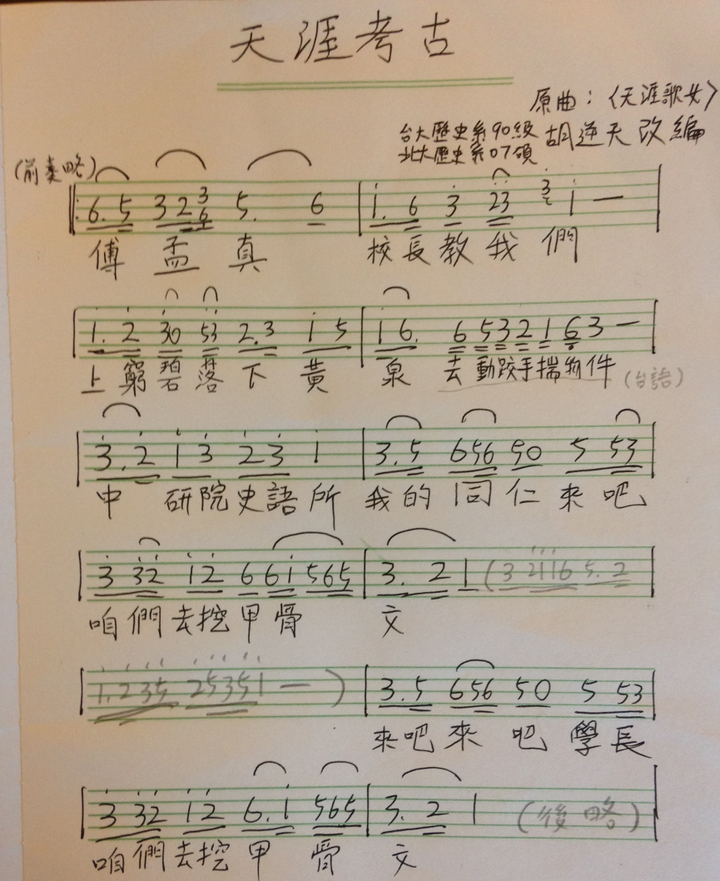 天涯考古
原曲：〈天涯歌女〉
台大歷史系90級
北大歷史系07碩
胡逆天改編
(前奏略)
6. 5 3 2 3 6 5. 6 1. 6 3 23 3 2 1 —
傅孟真 校長教我們
1. 2 30 53 2.3 1 5 1 6. 6 5 3 2 1 6 3 —
上窮碧落下黃泉去動跤手揣物件(台語)
3. 2 1 3 2 3 1 3. 5 656 50 5 53
中研院史語所 我的同仁來吧
3 32 12 6 61 565 3. 2 1 (3 2116 5. 2
咱們去挖甲骨文
1. 2 3 5 2 5 3 5 1 — ) 3. 5 656 50 5 53
來吧來吧學長
3 32 12 6. 1 565 3. 2 1 (後略)
咱們去挖甲骨文